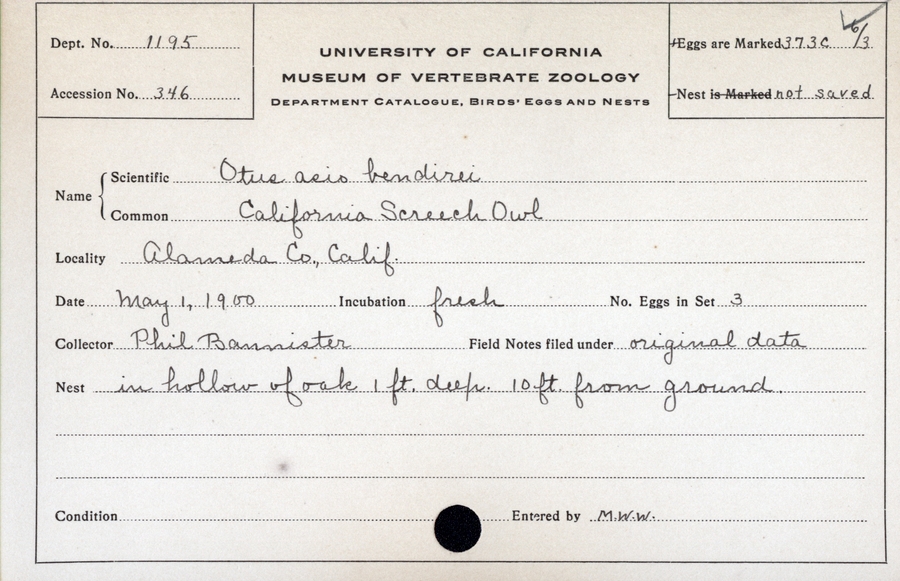 Dept. No. 1195
Accession No. 346
UNIVERSITY OF CALIFORNIA
MUSEUM OF VERTEBRATE ZOOLOGY
DEPARTMENT CATALOGUE, BIRDS' EGGS AND NESTS
Eggs are Marked 373c 6/3
Nest is Marked not saved
Name
Scientific Otus asio bendirei
Common California Screech Owl
Locality Alameda Co., Calif.
Date May 1, 1900 Incubation fresh No. Eggs in Set 3
Collector Phil Bannister Field Notes filed under original data
Nest in hollow of oak 1 ft. deep. 10 ft. from ground.
Condition Entered by M.W.W.